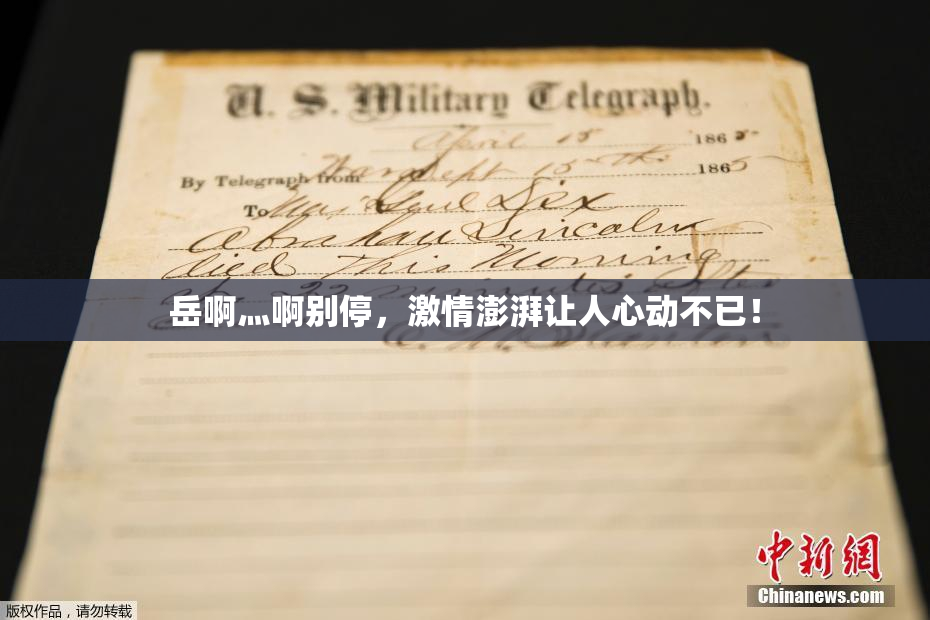 U. S. Military Telegraph.
April 15 1865
By Telegraph from War Dept 15th 1865
To Maj Genl Dix
Abraham Lincoln
died This Morning
at 22 minutes after
岳啊灬啊别停，激情澎湃让人心动不已！
E. M. Stanton
中新网
Chinanews.com
版权作品，请勿转载